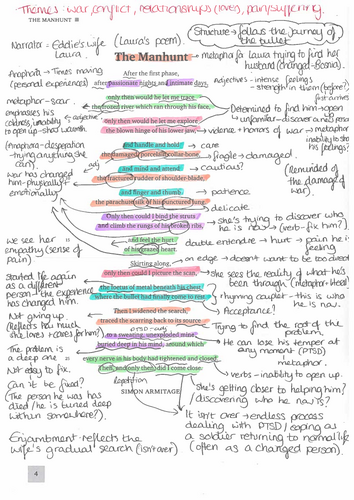 Themes: war, conflict, relationships (love), pain/suffering.
THE MANHUNT
Structure → follows the journey of the bullet
Narrator - Eddie's wife Laura. (Laura's poem).
The Manhunt
→ metapha for Laura trying to find her husband (changed - Bosnia).
After the first phase,
after passionate nights and intimate days,
only then would he let me trace
the frozen river which ran through his face,
only then would he let me explore
the blown hinge of his lower jaw,
and handle and hold
the damaged, porcelain collar-bone,
and mind and attend
the fractured rudder of shoulder-blade,
and finger and thumb
the parachute silk of his punctured lung.
Only then could I bind the struts
and climb the rungs of his broken ribs,
and feel the hurt
of his grazed heart.
Skirting along,
only then could I picture the scan,
the foetus of metal beneath his chest
where the bullet had finally come to rest.
Then I widened the search,
traced the scarring back to its source
to a sweating, unexploded mine
buried deep in his mind, around which
every nerve in his body had tightened and closed.
Then, and only then, did I come close.
SIMON ARMITAGE
Anaphora - Times moving
(personal experiences)
metaphor - scar.
emphasises his
coldness, inability
to open up - shot warmth
(Anaphora - desperation
- trying anything she
can).
War has changed
him - physically +
emotionally
We see her
empathy (sense of
pain)
Started life again
as a different
person - the experience
has changed him.
Not giving up.
(Reflects how much
she loves + cares for him)
The problem is
a deep one
Not easy to fix.
Can it be fixed?
(The person he was has
died / he is turned deep
within somewhere?).
Enjambment - reflect the
wife's gradual search (isn't over)
adjectives - intense feelings
→ strength in them (before?)
Determined to find him - open up
- violence + horrors of war
→ metaphor
→ care
→ fragile → damaged.
→ cautious?
(Reminded of
the damage of
war)
→ patience.
→ delicate
→ She's trying to discover who
he is now → (verb - fix him?)
double entendre → hurt → pain in feeling
→ on edge → doesn't want to be too direct
→ She sees the reality of what he's
been through
→ rhyming couplet - this is who
he is now.
→ Acceptance?
Trying to find the root of the
problem.
→ PTSD - cuts
→ He can lose his temper at
any moment (PTSD)
metaphor.
→ verbs - inability to open up.
repetition
She's getting closer to helping him?
/ discovering who he now is?
It isn't over → endless process
dealing with PTSD / coping as
a soldier returning to normal life
(often as a changed person).
4